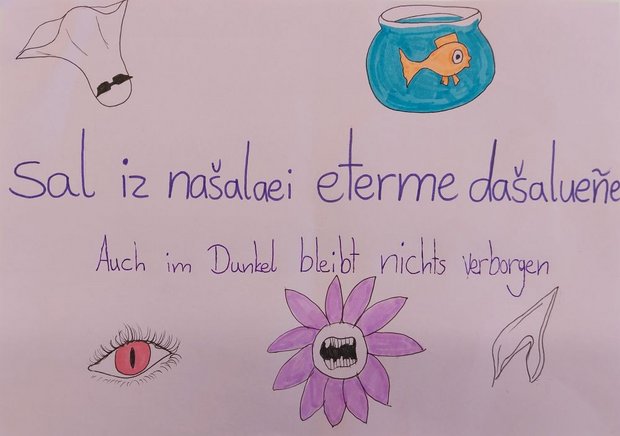 sal iz našalaei eterme dašalueñe
Auch im Dunkel bleibt nichts verborgen